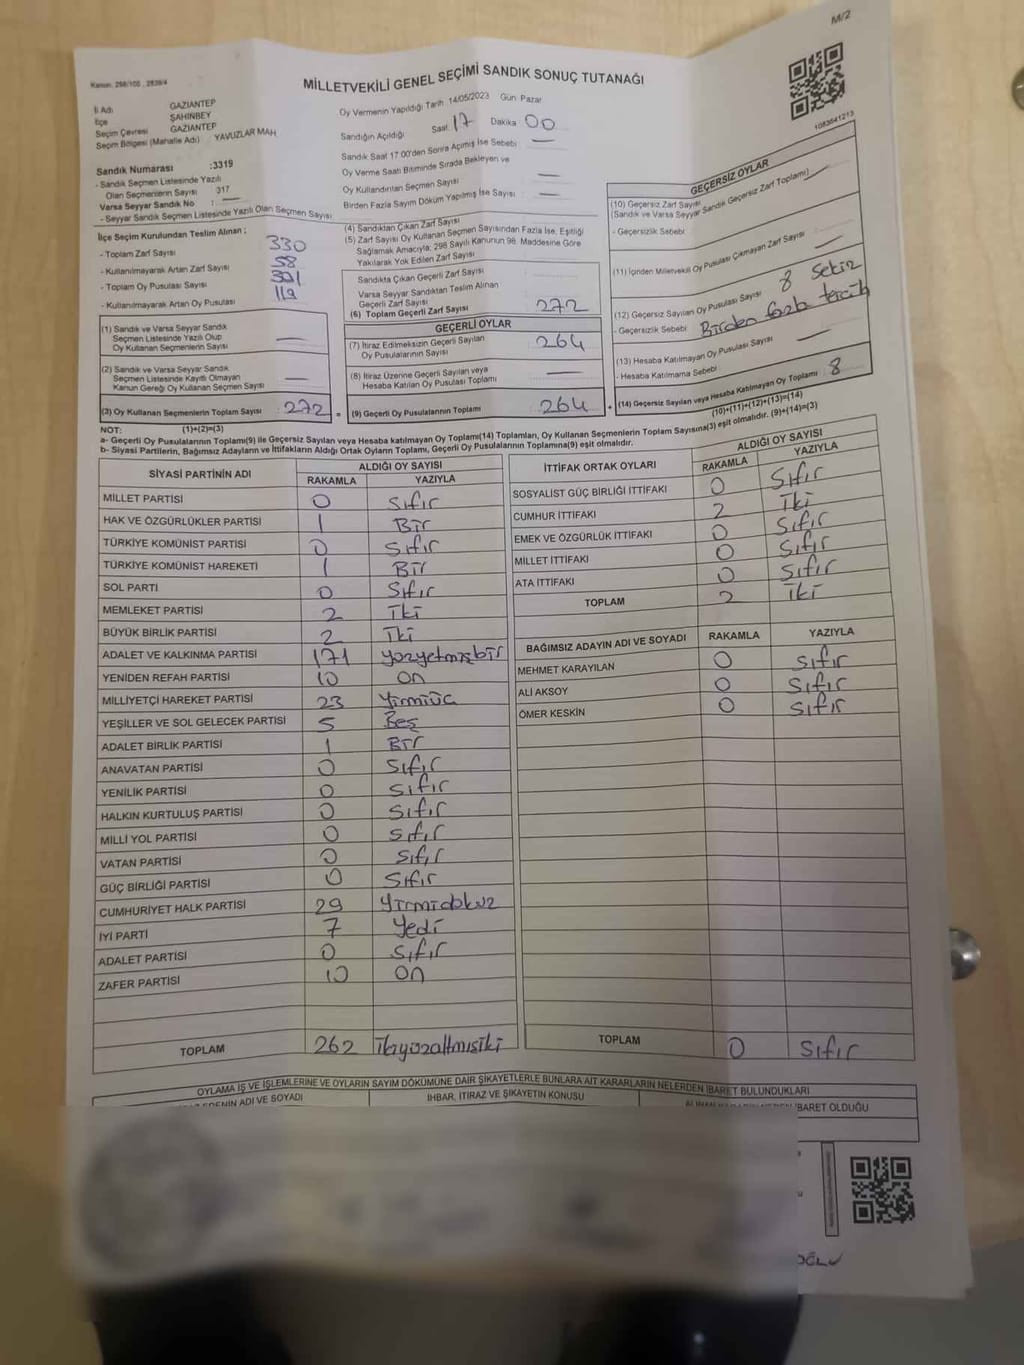 M/2
Kanun: 298/105 , 2839/4
MİLLETVEKİLİ GENEL SEÇİMİ SANDIK SONUÇ TUTANAĞI
İl Adı GAZİANTEP
İlçe ŞAHİNBEY
Seçim Çevresi GAZİANTEP
Seçim Bölgesi (Mahalle Adı) : YAVUZLAR MAH
Sandık Numarası :3319
- Sandık Seçmen Listesinde Yazılı
Olan Seçmenlerin Sayısı : 317
Varsa Seyyar Sandık No : —
- Seyyar Sandık Seçmen Listesinde Yazılı Olan Seçmen Sayısı
Oy Vermenin Yapıldığı Tarih 14/05/2023 Gün Pazar
Sandığın Açıldığı Saat 17 Dakika 00
Sandık Saat 17:00'den Sonra Açılmış İse Sebebi : —
Oy Verme Saati Bitiminde Sırada Bekleyen ve
Oy Kullandırılan Seçmen Sayısı —
Birden Fazla Sayım Döküm Yapılmış İse Sayısı : —
1083641213
İlçe Seçim Kurulundan Teslim Alınan ;
- Toplam Zarf Sayısı 330
- Kullanılmayarak Artan Zarf Sayısı 58
- Toplam Oy Pusulası
- Kullanılmayarak Artan Oy Pusulası 119
(1) Sandık ve Varsa Seyyar Sandık
Seçmen Listesinde Yazılı Olup
Oy Kullanan Seçmenlerin Sayısı —
(2) Sandık ve Varsa Seyyar Sandık
Seçmen Listesinde Kayıtlı Olmayan
Kanun Gereği Oy Kullanan Seçmen Sayısı —
(3) Oy Kullanan Seçmenlerin Toplam Sayısı 272 =
(1)+(2)=(3)
(4) Sandıktan Çıkan Zarf Sayısı
(5) Zarf Sayısı Oy Kullanan Seçmen Sayısından Fazla İse, Eşitliği
Sağlamak Amacıyla; 298 Sayılı Kanunun 98. Maddesine Göre
Yakılarak Yok Edilen Zarf Sayısı
Sandıkta Çıkan Geçerli Zarf Sayısı
Varsa Seyyar Sandıktan Teslim Alınan
Geçerli Zarf Sayısı
(6) Toplam Geçerli Zarf Sayısı 272
GEÇERLİ OYLAR
(7) İtiraz Edilmeksizin Geçerli Sayılan
Oy Pusulalarının Sayısı 264
(8) İtiraz Üzerine Geçerli Sayılan veya
Hesaba Katılan Oy Pusulası Toplamı —
(9) Geçerli Oy Pusulalarının Toplamı 264 +
GEÇERSİZ OYLAR
(10) Geçersiz Zarf Sayısı
(Sandık ve Varsa Seyyar Sandık Geçersiz Zarf Toplamı)
- Geçersizlik Sebebi
(11) İçinden Milletvekili Oy Pusulası Çıkmayan Zarf Sayısı
(12) Geçersiz Sayılan Oy Pusulası Sayısı 8 Sekiz
- Geçersizlik Sebebi Birden fazla tercih
(13) Hesaba Katılmayan Oy Pusulası Sayısı
- Hesaba Katılmama Sebebi
(14) Geçersiz Sayılan veya Hesaba Katılmayan Oy Toplamı 8
(10)+(11)+(12)+(13)=(14)
NOT:
a- Geçerli Oy Pusulaları Toplamı(9) ile Geçersiz Sayılan veya Hesaba katılmayan Oy Toplamı(14) Toplamları, Oy Kullanan Seçmenlerin Toplam Sayısına(3) eşit olmalıdır. (9)+(14)=(3)
b- Siyasi Partilerin, Bağımsız Adayların ve İttifakların Aldığı Ortak Oyların Toplamı, Geçerli Oy Pusulalarının Toplamına(9) eşit olmalıdır.
SİYASİ PARTİNİN ADI ALDIĞI OY SAYISI
RAKAMLA YAZIYLA
MİLLET PARTİSİ 0 Sıfır
HAK VE ÖZGÜRLÜKLER PARTİSİ 1 Bir
TÜRKİYE KOMÜNİST PARTİSİ 0 Sıfır
TÜRKİYE KOMÜNİST HAREKETİ 1 Bir
SOL PARTİ 0 Sıfır
MEMLEKET PARTİSİ 2 İki
BÜYÜK BİRLİK PARTİSİ 2 İki
ADALET VE KALKINMA PARTİSİ 171 yüzyetmişbir
YENİDEN REFAH PARTİSİ 10 on
MİLLİYETÇİ HAREKET PARTİSİ 23 Yirmiüç
YEŞİLLER VE SOL GELECEK PARTİSİ 5 Beş
ADALET BİRLİK PARTİSİ 1 Bir
ANAVATAN PARTİSİ 0 Sıfır
YENİLİK PARTİSİ 0 Sıfır
HALKIN KURTULUŞ PARTİSİ 0 Sıfır
MİLLİ YOL PARTİSİ 0 Sıfır
VATAN PARTİSİ 0 Sıfır
GÜÇ BİRLİĞİ PARTİSİ 0 Sıfır
CUMHURİYET HALK PARTİSİ 29 Yirmidokuz
İYİ PARTİ 7 Yedi
ADALET PARTİSİ 0 Sıfır
ZAFER PARTİSİ 10 on
TOPLAM 262 ikiyüzaltmışiki
İTTİFAK ORTAK OYLARI ALDIĞI OY SAYISI
RAKAMLA YAZIYLA
SOSYALİST GÜÇ BİRLİĞİ İTTİFAKI 0 Sıfır
CUMHUR İTTİFAKI 2 İki
EMEK VE ÖZGÜRLÜK İTTİFAKI 0 Sıfır
MİLLET İTTİFAKI 0 Sıfır
ATA İTTİFAKI 0 Sıfır
TOPLAM 2 İki
BAĞIMSIZ ADAYIN ADI VE SOYADI RAKAMLA YAZIYLA
MEHMET KARAYILAN 0 Sıfır
ALİ AKSOY 0 Sıfır
ÖMER KESKİN 0 Sıfır
TOPLAM 0 Sıfır
OYLAMA İŞ VE İŞLEMLERİNE VE OYLARIN SAYIM DÖKÜMÜNE DAİR ŞİKAYETLERLE BUNLARA AİT KARARLARIN NELERDEN İBARET BULUNDUKLARI
ADI VE SOYADI İHBAR, İTİRAZ VE ŞİKAYETİN KONUSU İBARET OLDUĞU
OĞLU